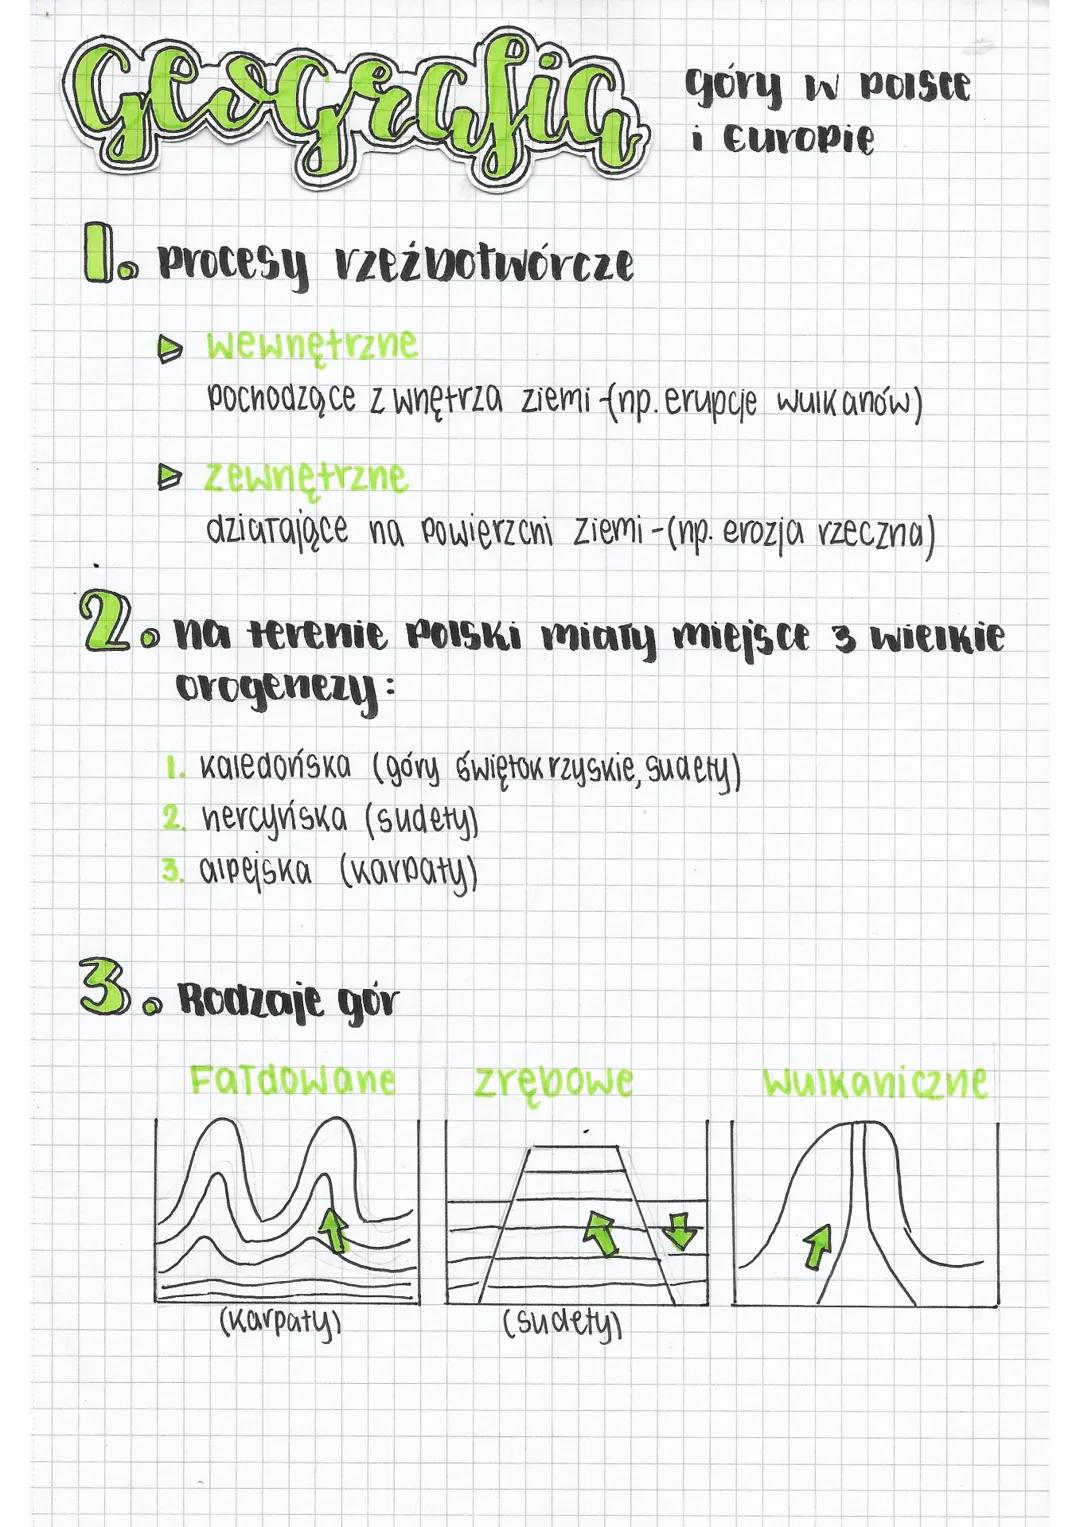 Geografia
góry w Polsce
i Europie
1. procesy rzeźbotwórcze
wewnętrzne
pochodzące z wnętrza ziemi -(np. erupcje wulkanów)
zewnętrzne
działające na powierzchni ziemi -(np. erozja rzeczna)
2. na terenie Polski miały miejsce 3 wielkie
orogenezy:
1. kaledońska (góry świętokrzyskie, sudety)
2. hercyńska (sudety)
3. alpejska (karpaty)
3. Rodzaje gór
Fałdowane zrębowe wulkaniczne
(karpaty) (sudety)